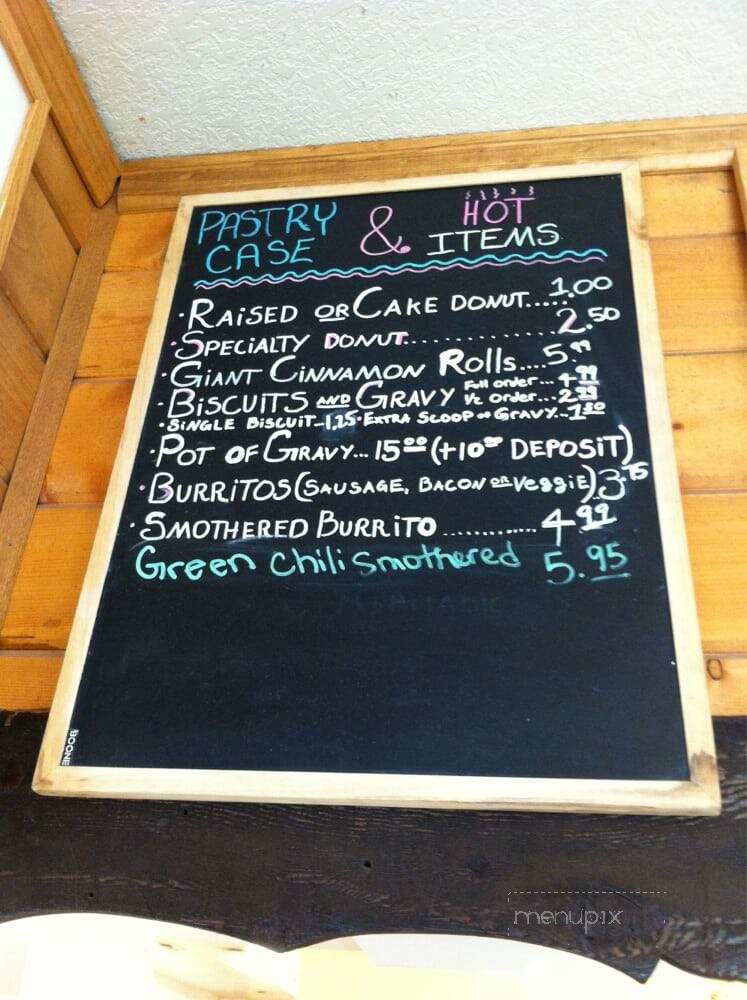 PASTRY CASE & HOT ITEMS
·RAISED OR CAKE DONUT.....1.00
·SPECIALTY DONUT..............2.50
·GIANT CINNAMON Rolls....5.99
·BISCUITS AND GRAVY Full order...4.99
1/2 order...2.99
·SINGLE BISCUIT..1.25 ·EXTRA SCOOP OF GRAVY...1.50
·POT OF GRAVY...15.00 (+10.00 DEPOSIT)
·BURRITOS(SAUSAGE, BACON OR Veggie)3.75
·SMOTHERED BURRITO...........4.99
Green Chili Smothered 5.95
BOONE
menupix